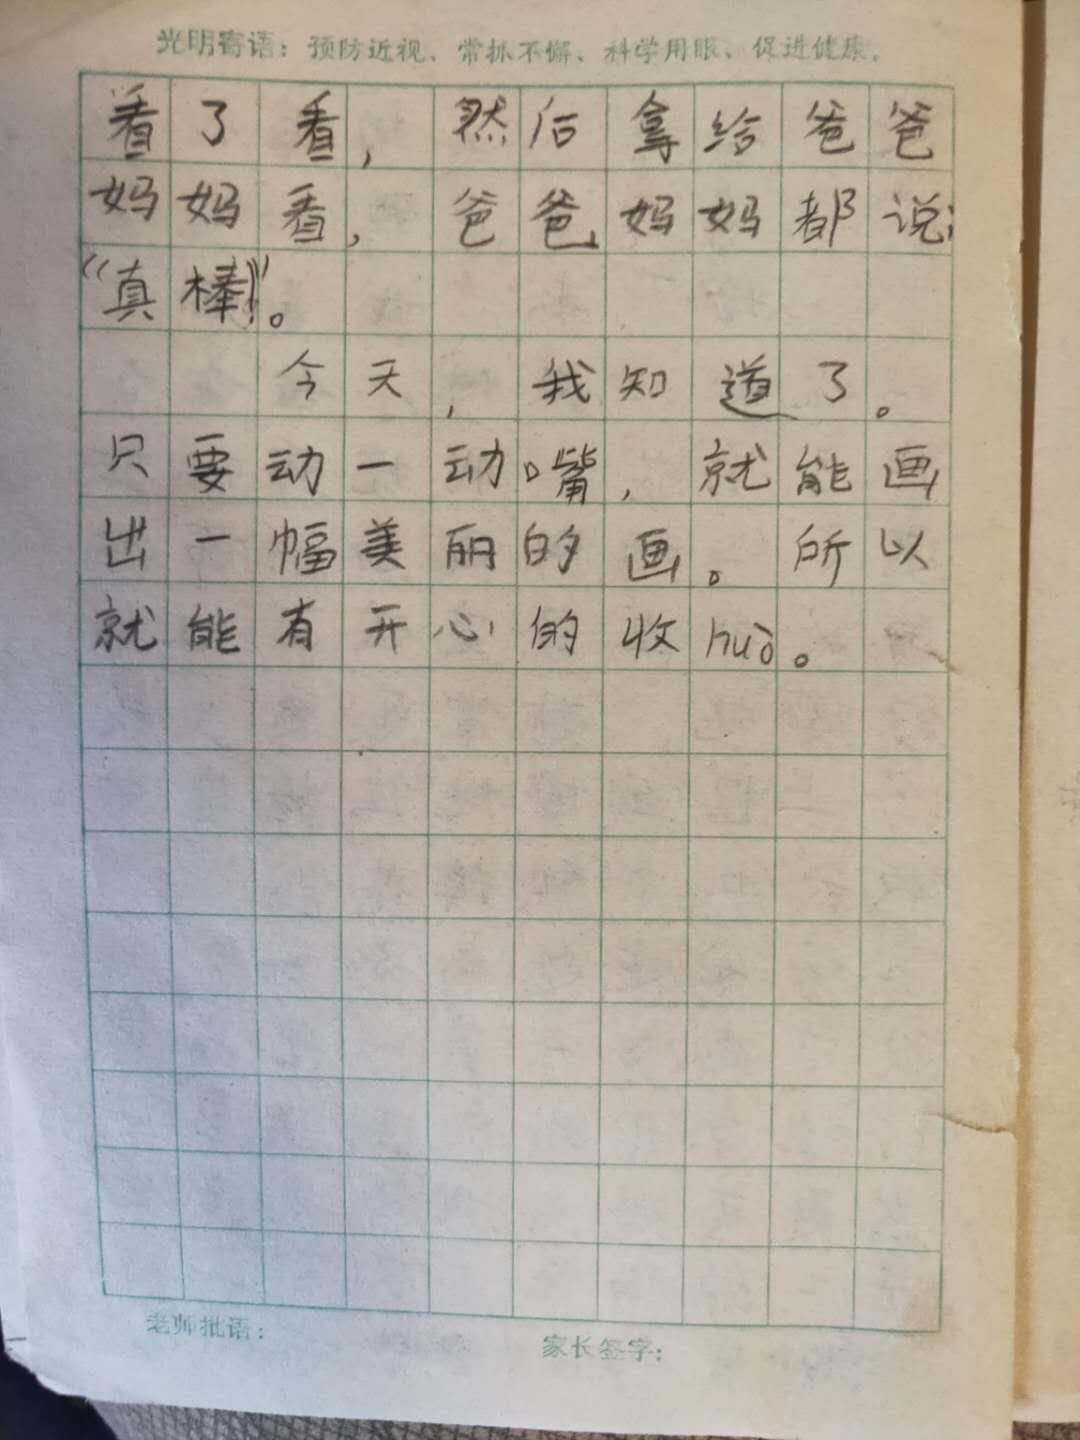 光明寄语：预防近视、常抓不懈、科学用眼、促进健康。
看了看，然后拿给爸爸
妈妈看，爸爸妈妈都说：
“真棒！”。
今天，我知道了。
只要动一动嘴，就能画
出一幅美丽的画。所以
就能有开心的收huò。
老师批语：
家长签字：